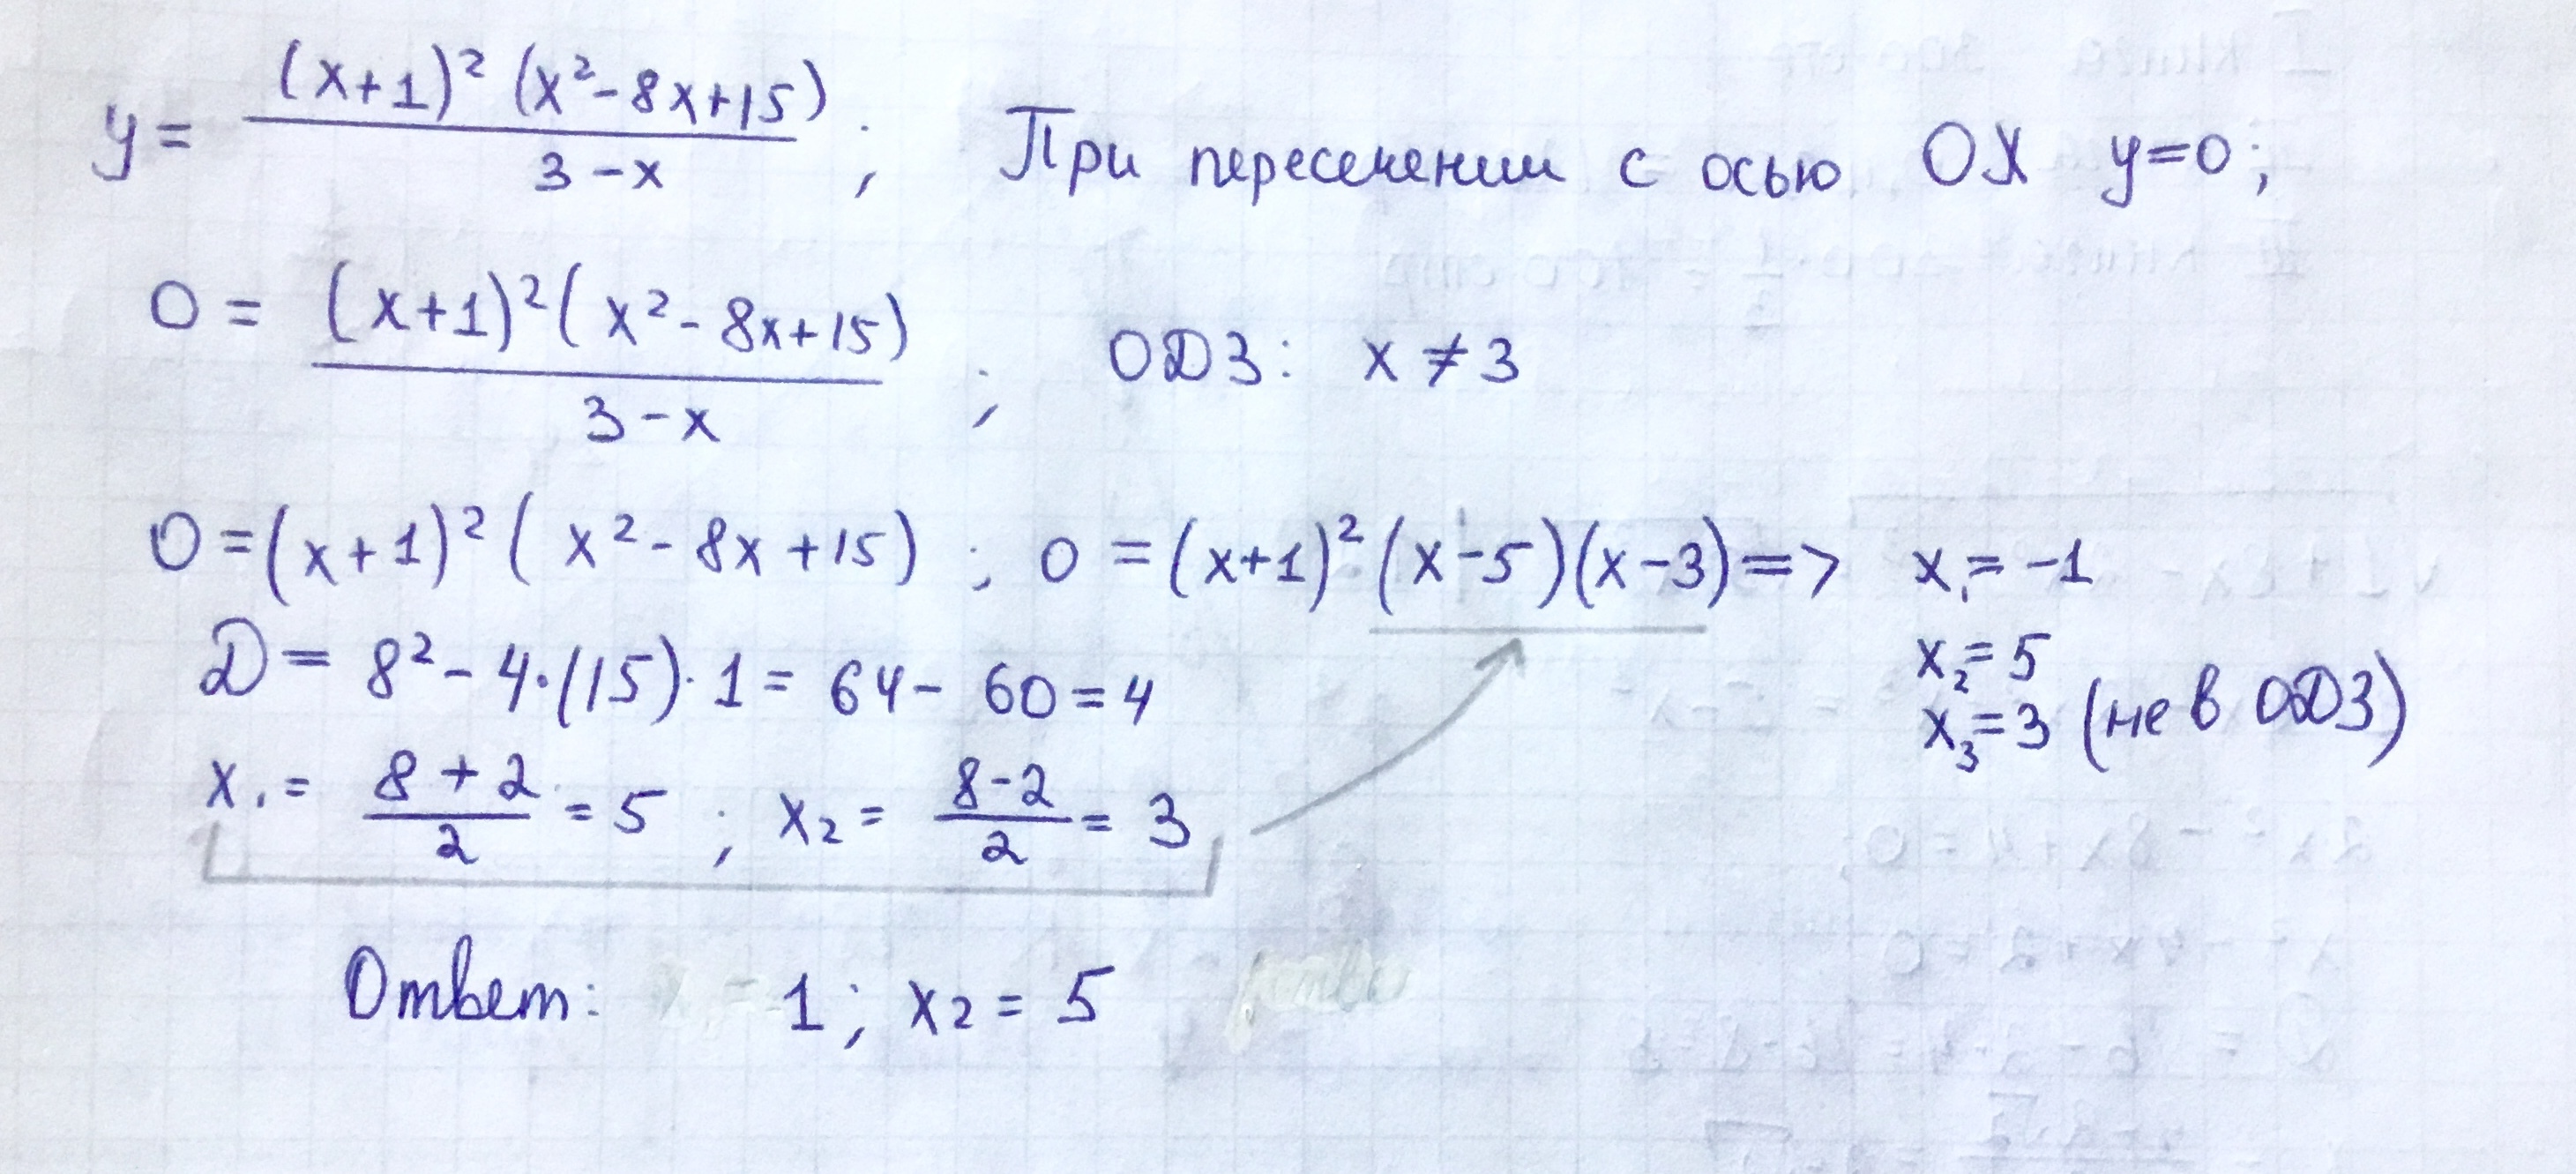 y = (x+1)² (x²-8x+15) / 3-x ; При пересечении с осью OX y=0;
0 = (x+1)² (x²-8x+15) / 3-x ; ОДЗ: x ≠ 3
0 = (x+1)² (x²-8x+15) ; 0 = (x+1)² (x-5)(x-3) => x₁ = -1
x₂ = 5
D = 8² - 4·(15)·1 = 64 - 60 = 4
x₃ = 3 (не в ОДЗ)
x₁ = 8+2 / 2 = 5 ; x₂ = 8-2 / 2 = 3
Ответ: 1; x₂ = 5